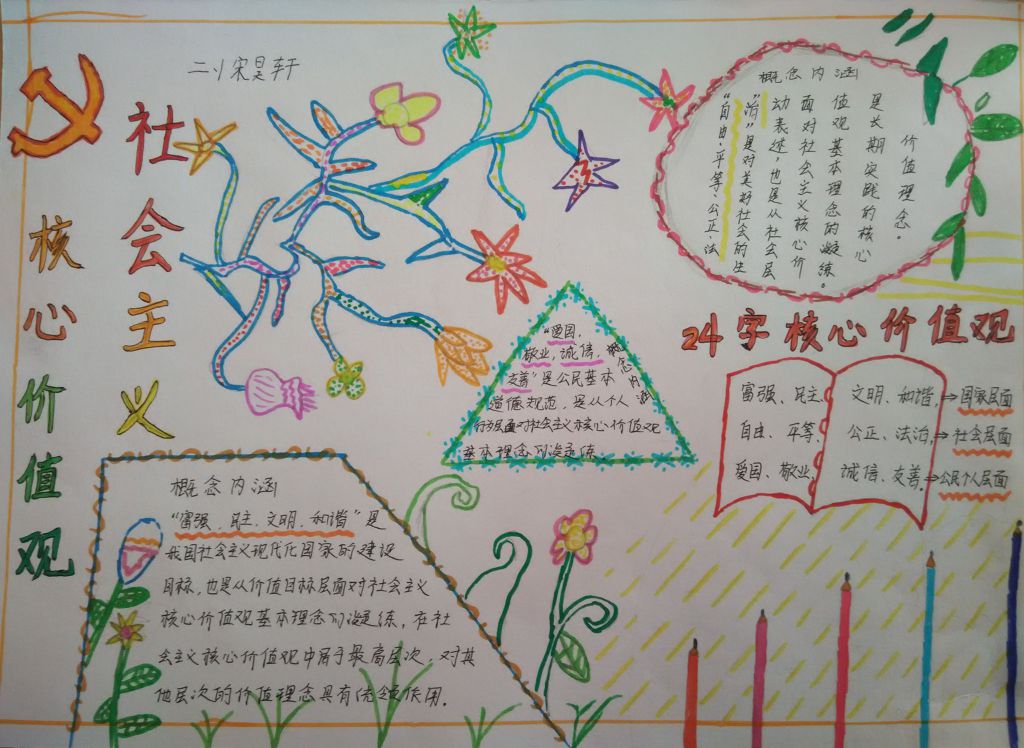 二小宋昊轩
社会主义
核心价值观
概念内涵
"自由、平等、公正、法
治"是对美好社会的生
动表述,也是从社会层
面对社会主义核心价
值观基本理念的凝练。
是长期实践的核心
价值理念。
"爱国、
敬业,诚信,
友善"是公民基本
道德规范,是从个人
行为层面对社会主义核心价值观
基本理念的凝练
概念内涵
24字核心价值观
富强、民主、文明、和谐,→国家层面
自由、平等、公正、法治,→社会层面
爱国、敬业,诚信、友善。→公民个人层面
概念内涵
"富强、民主、文明、和谐"是
我国社会主义现代化国家的建设
目标,也是从价值目标层面对社会主义
核心价值观基本理念的凝练,在社
会主义核心价值观中居于最高层次,对其
他层次的价值理念具有统领作用。